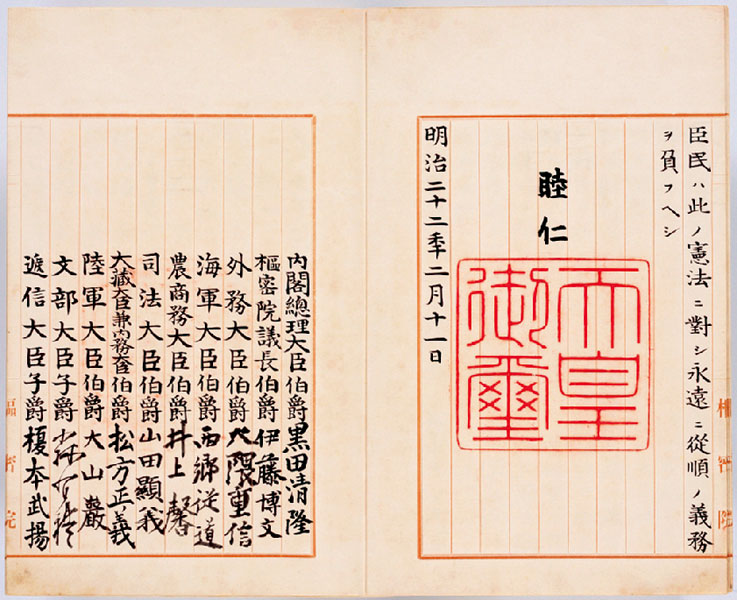 樞密院
臣民ハ此ノ憲法ニ對シ永遠ニ從順ノ義務
ヲ負フヘシ
睦仁
天皇
御璽
明治二十二季二月十一日
內閣總理大臣伯爵黑田清隆
樞密院議長伯爵伊藤博文
外務大臣伯爵大隈重信
海軍大臣伯爵西鄉從道
農商務大臣伯爵井上馨
司法大臣伯爵山田顯義
大藏大臣兼內務大臣伯爵松方正義
陸軍大臣伯爵大山巖
文部大臣子爵森有禮
遞信大臣子爵榎本武揚
樞密院